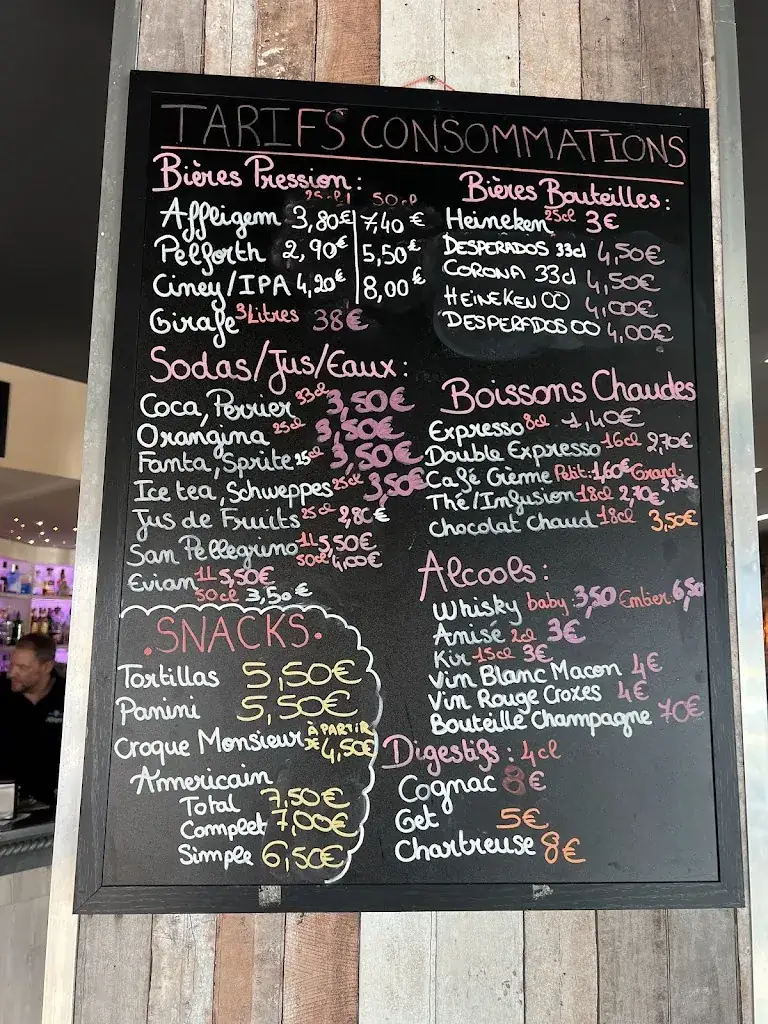 TARIFS CONSOMMATIONS
Bières Pression :
25cl 50cl
Affligem 3,80€ 7,40€
Pelforth 2,90€ 5,50€
Ciney/IPA 4,20€ 8,00€
Girafe 3Litres 38€
Sodas/Jus/Eaux :
Coca, Perrier 33cl 3,50€
Orangina 25cl 3,50€
Fanta, Sprite 25cl 3,50€
Ice tea, Schweppes 25cl 3,50€
Jus de Fruits 25cl 2,80€
San Pellegrino 1L 5,50€
50cl 4,00€
Evian 1L 5,50€
50cl 3,50€
.SNACKS.
Tortillas 5,50€
Panini 5,50€
Croque Monsieur À PARTIR DE 4,50€
Americain
Total 7,50€
Complet 7,00€
Simple 6,50€
Bières Bouteilles :
Heineken 25cl 3€
DESPERADOS 33cl 4,50€
CORONA 33cl 4,50€
HEINEKEN 00 4,00€
DESPERADOS 00 4,00€
Boissons Chaudes
Expresso 8cl 1,40€
Double Expresso 16cl 2,70€
Café Crème Petit: 1,60€ Grand:
Thé/Infusion 18cl 2,70€
chocolat Chaud 18cl 3,50€
Alcools :
Whisky baby: 3,50 Entier: 6,50
Anisé 2cl 3€
Kir 15cl 3€
Vin Blanc Macon 4€
Vin Rouge Crozes 4€
Bouteille Champagne 70€
Digestifs : 4cl
Cognac 8€
Get 5€
Chartreuse 8€